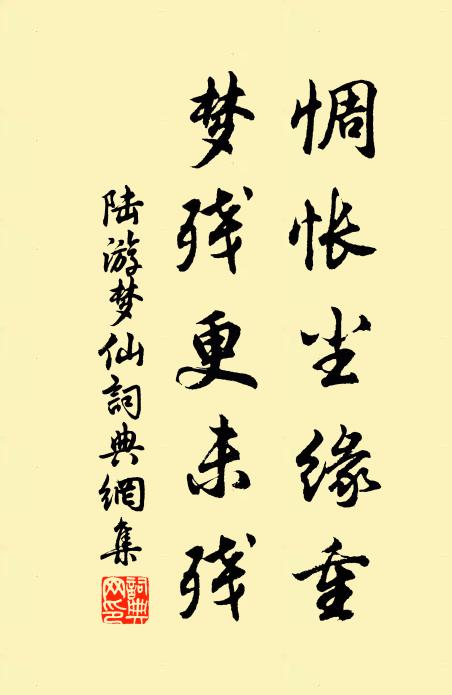 惆怅尘缘重
梦残更未残
陆游梦仙詞典網集
詞典
网印